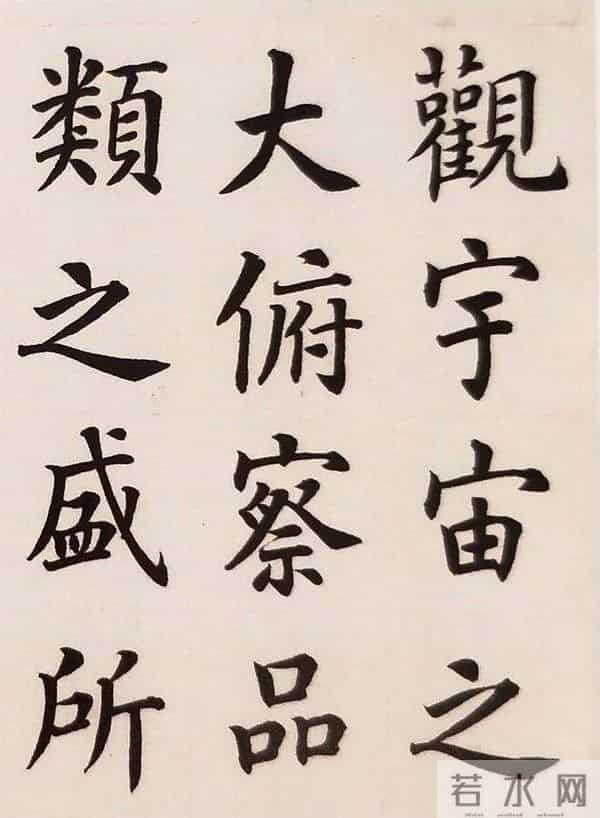 觀宇宙之
大俯察品
類之盛所
若水网